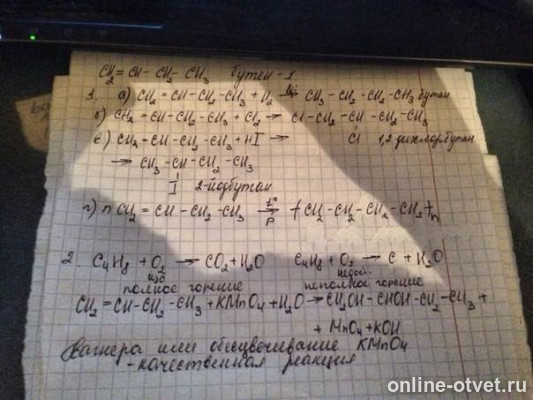 CH2=CH-CH2-CH3 бутен-1.
1. а) CH2=CH-CH2-CH3 + H2 → CH3-CH2-CH2-CH3 бутан
б) CH2=CH-CH2-CH3 + Cl2 → Cl-CH2-CH-CH2-CH3
Cl 1,2 дихлорбутан
в) CH2=CH-CH2-CH3 + HI →
→ CH3-CH-CH2-CH3
I 2-йодбутан
г) n CH2=CH-CH2-CH3 t° → P (-CH2-CH2-CH2-CH2-)n
2. C4H8 + O2 → CO2 + H2O C4H8 + O2 → C + H2O
изб недос.
полное горение неполное горение
CH2=CH-CH2-CH3 + KMnO4 + H2O → CH2OH-CHOH-CH2-CH3 +
+ MnO2 + KOH
Вагнера или обесцвечивание KMnO4
-качественная реакция
online-otvet.ru